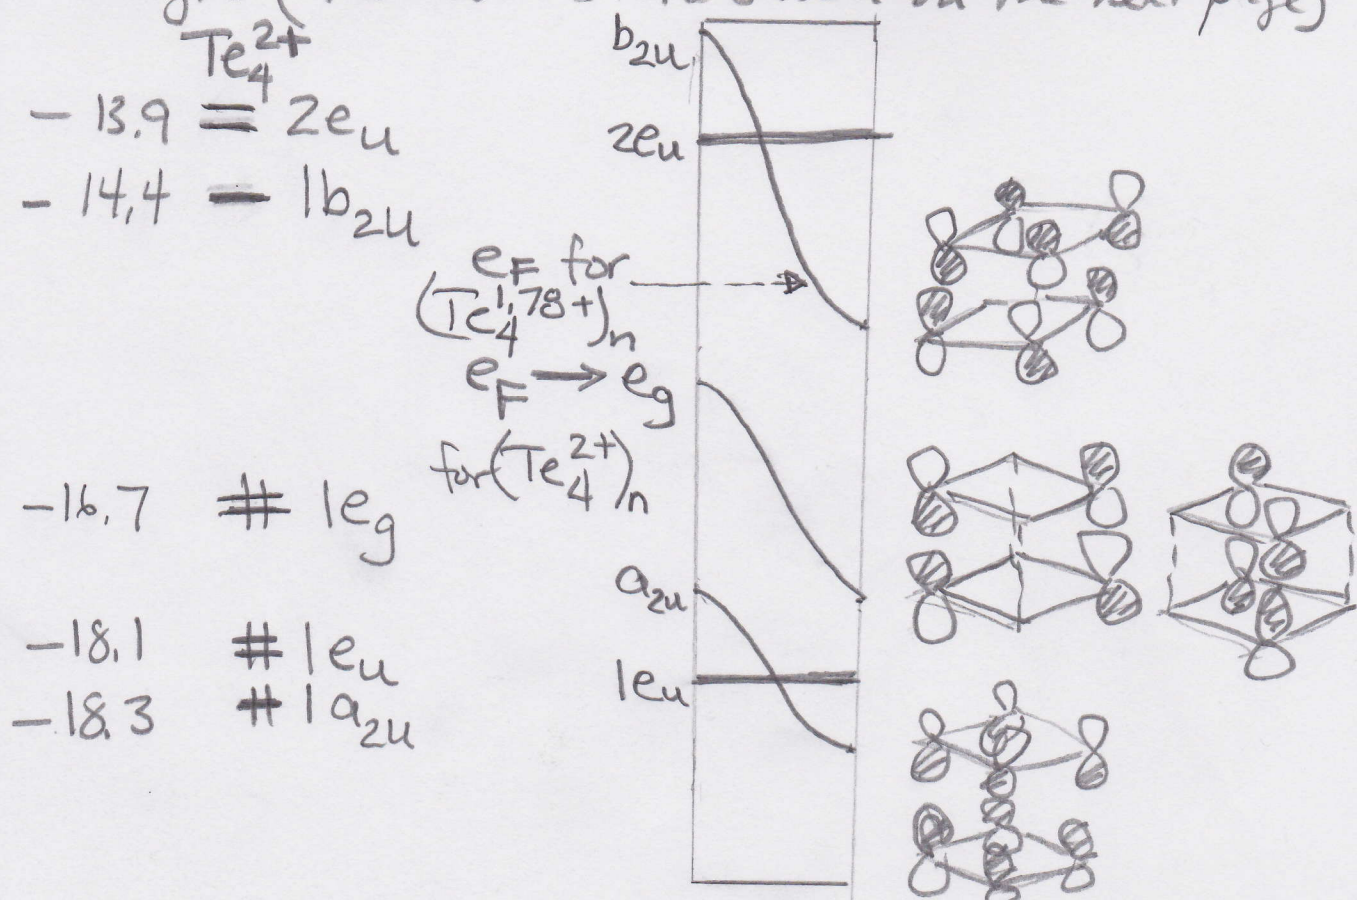 on the next page)
Te₄²⁺
-13.9 2eᵤ
-14.4 1b₂ᵤ
-16.7 1e_g
-18.1 1eᵤ
-18.3 1a₂ᵤ
b₂ᵤ
2eᵤ
e_F for
(Te₄^1.78+)ₙ
e_F → e_g
for (Te₄²⁺)ₙ
a₂ᵤ
1eᵤ